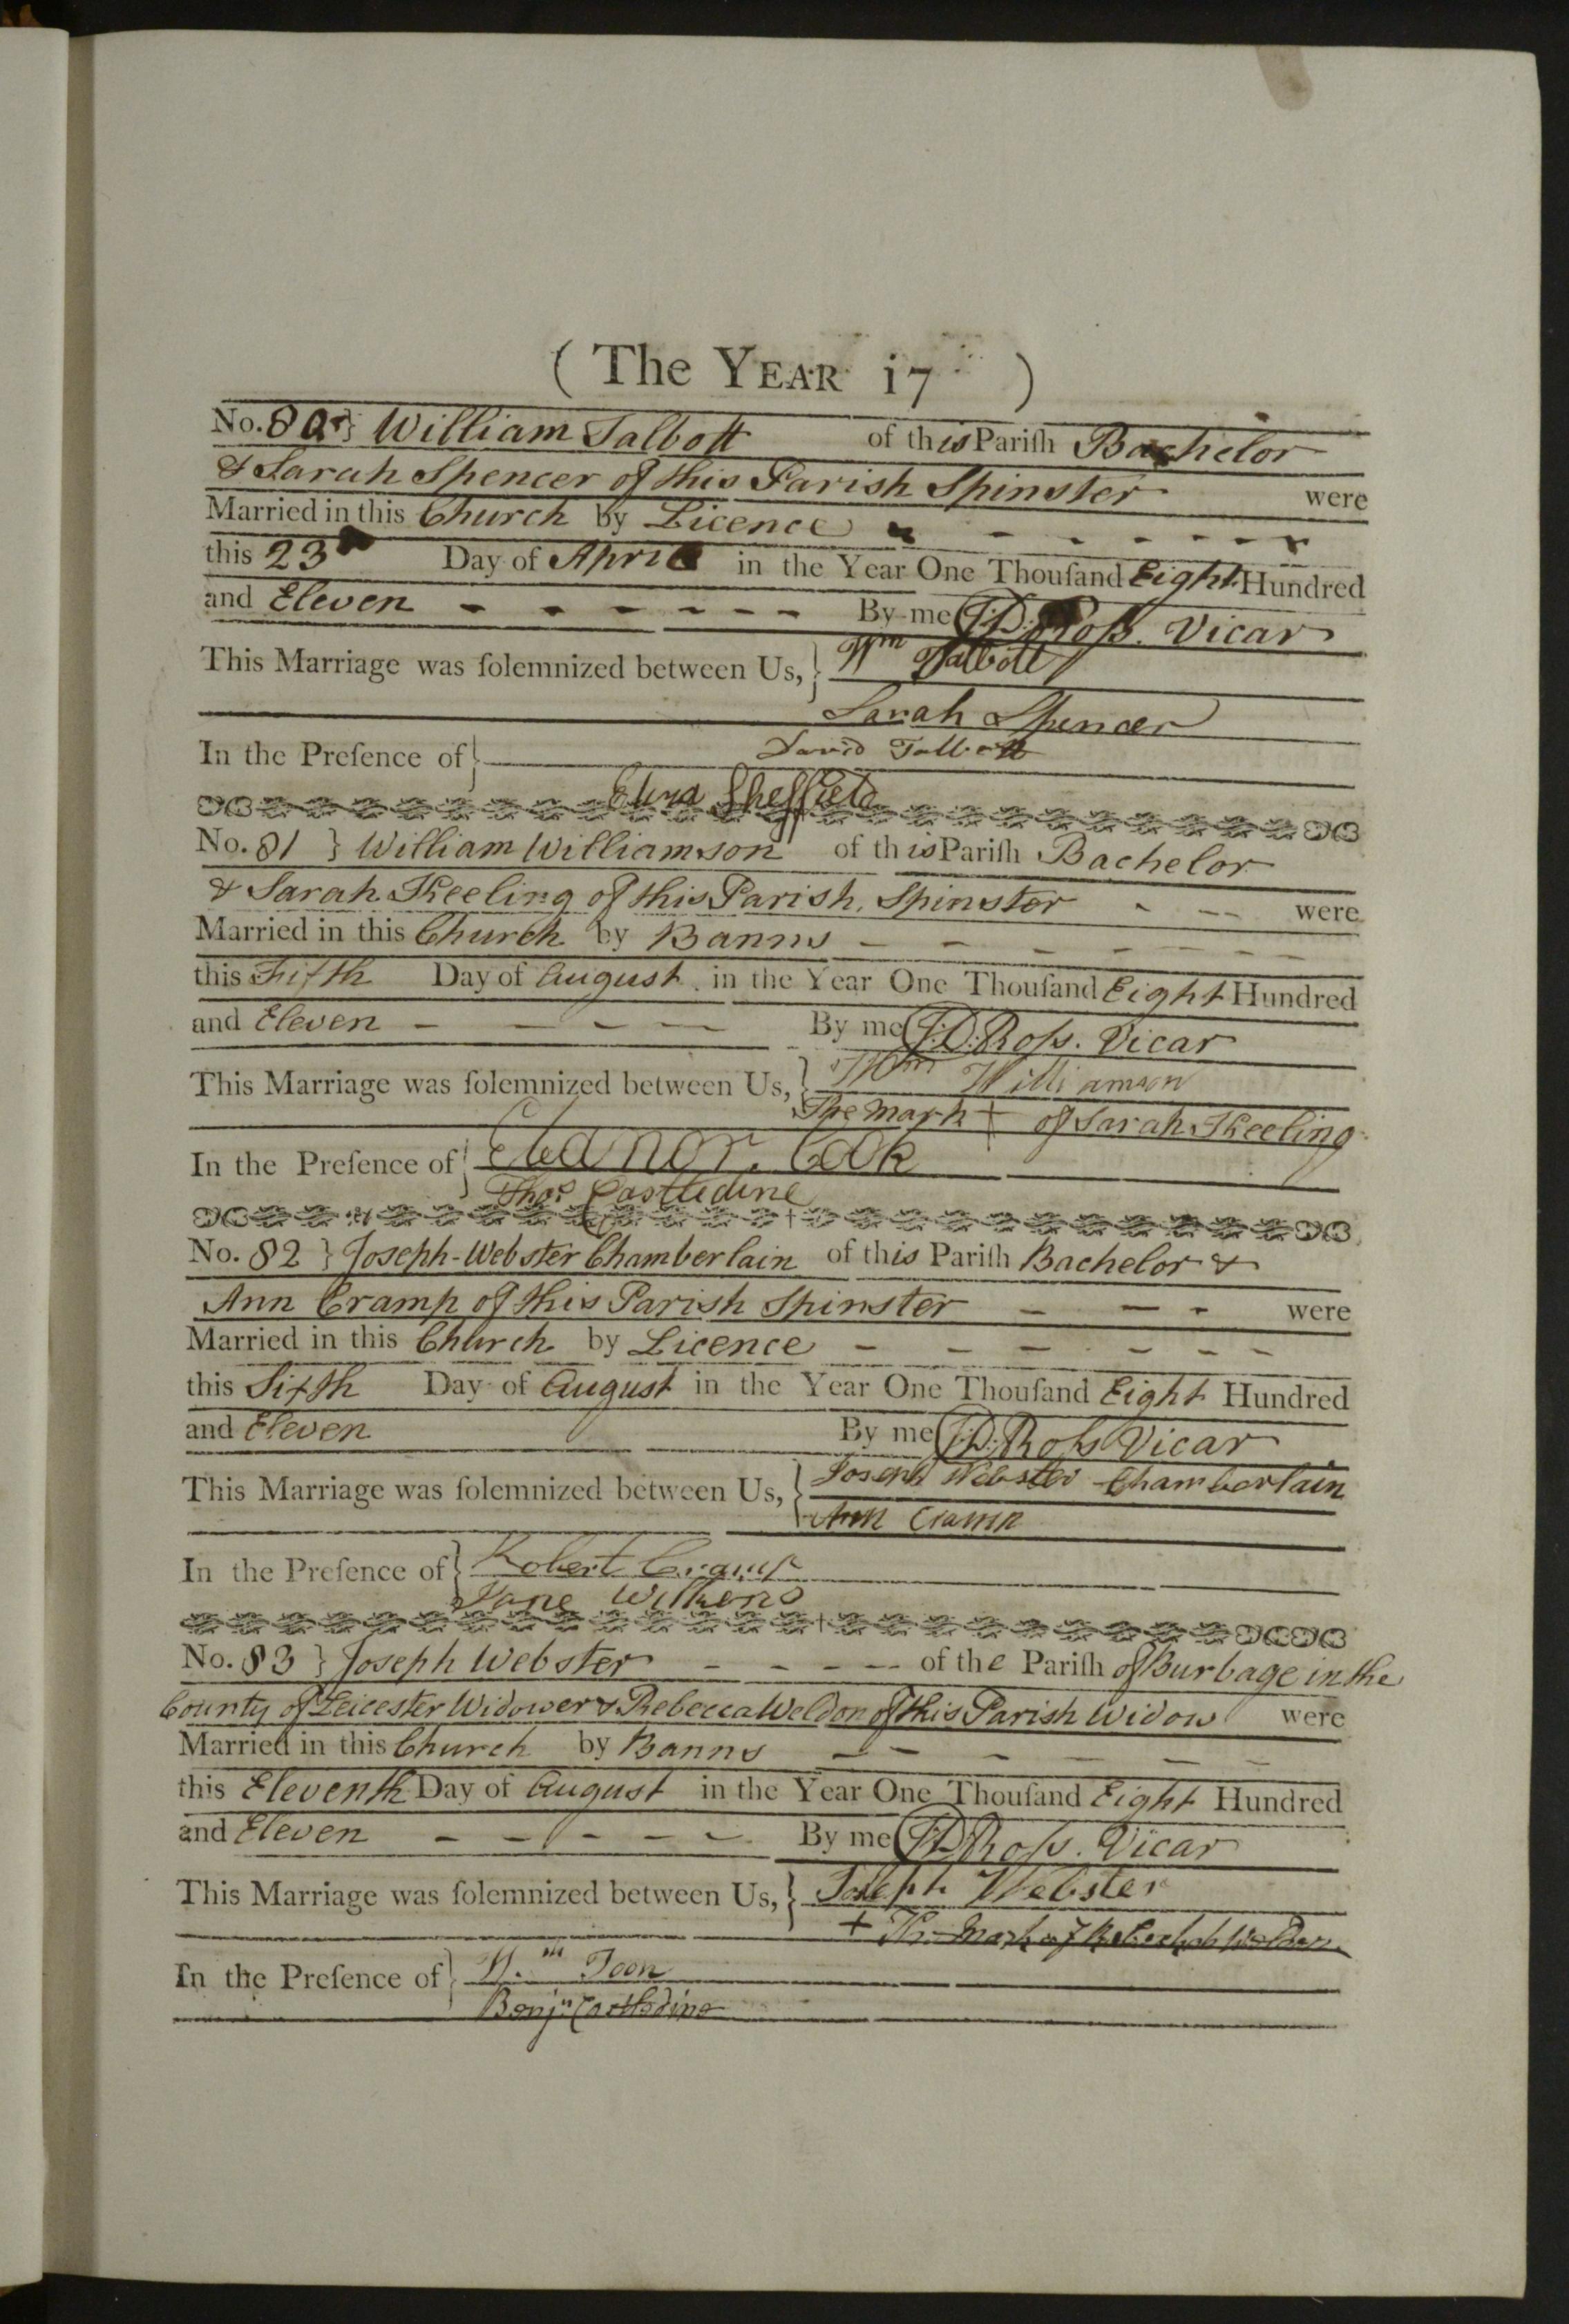 ( The YEAR 17 )
No. 80 } William Talbott of this Pariſh Bachelor
& Sarah Spencer of this Parish Spinster were
Married in this Church by Licence - - - - - -
this 23 Day of April in the Year One Thouſand Eight Hundred
and Eleven - - - - - - - By me T:D: Roſs. Vicar
This Marriage was ſolemnized between Us, } Wm Talbott
Sarah Spencer
In the Preſence of } David Talbott
Sheffield
No. 81 } William Williamson of this Pariſh Bachelor
& Sarah Keeling of this Parish, Spinster - - - were
Married in this Church by Banns - - - - - - -
this Fifth Day of August in the Year One Thouſand Eight Hundred
and Eleven - - - - By me T:D: Roſs. Vicar
This Marriage was ſolemnized between Us, } Wm Williamson
The Mark + of Sarah Keeling
In the Preſence of } Eleanor Cook
Thos Castledine
No. 82 } Joseph-Webster Chamberlain of this Pariſh Bachelor &
Ann Cramp of this Parish Spinster - - - were
Married in this Church by Licence - - - - - - -
this Sixth Day of August in the Year One Thouſand Eight Hundred
and Eleven By me T:D: Roſs Vicar
This Marriage was ſolemnized between Us, } Joseph Webster Chamberlain
Ann Cramp
In the Preſence of } Robert Cramp
Jane Wilkens
No. 83 } Joseph Webster - - - - - of the Pariſh of Burbage in the
County of Leicester Widower & Rebecca Weldon of this Parish Widow were
Married in this Church by Banns - - - - - -
this Eleventh Day of August in the Year One Thouſand Eight Hundred
and Eleven - - - - - - By me T:D: Roſs. Vicar
This Marriage was ſolemnized between Us, } Joseph Webster
+ The Mark of Rebeckah Weldon
In the Preſence of } Wm Toon
Benjn Castledine